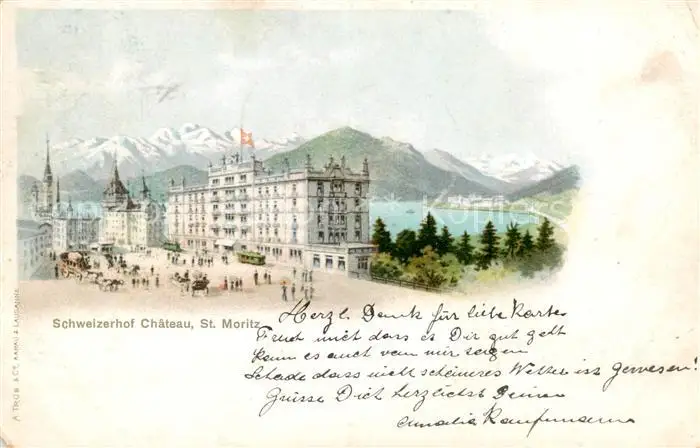 Schweizerhof Château, St. Moritz
Herzl. Dank für liebe Karte
Freut mich dass es Dir gut geht
kann es auch von mir sagen
Schade dass nicht schöneres Wetter ist gewesen!
Grüsse Dich herzlichst Deine
Amalia Kaufmann
A. TRÜB & Cie. AARAU & LAUSANNE